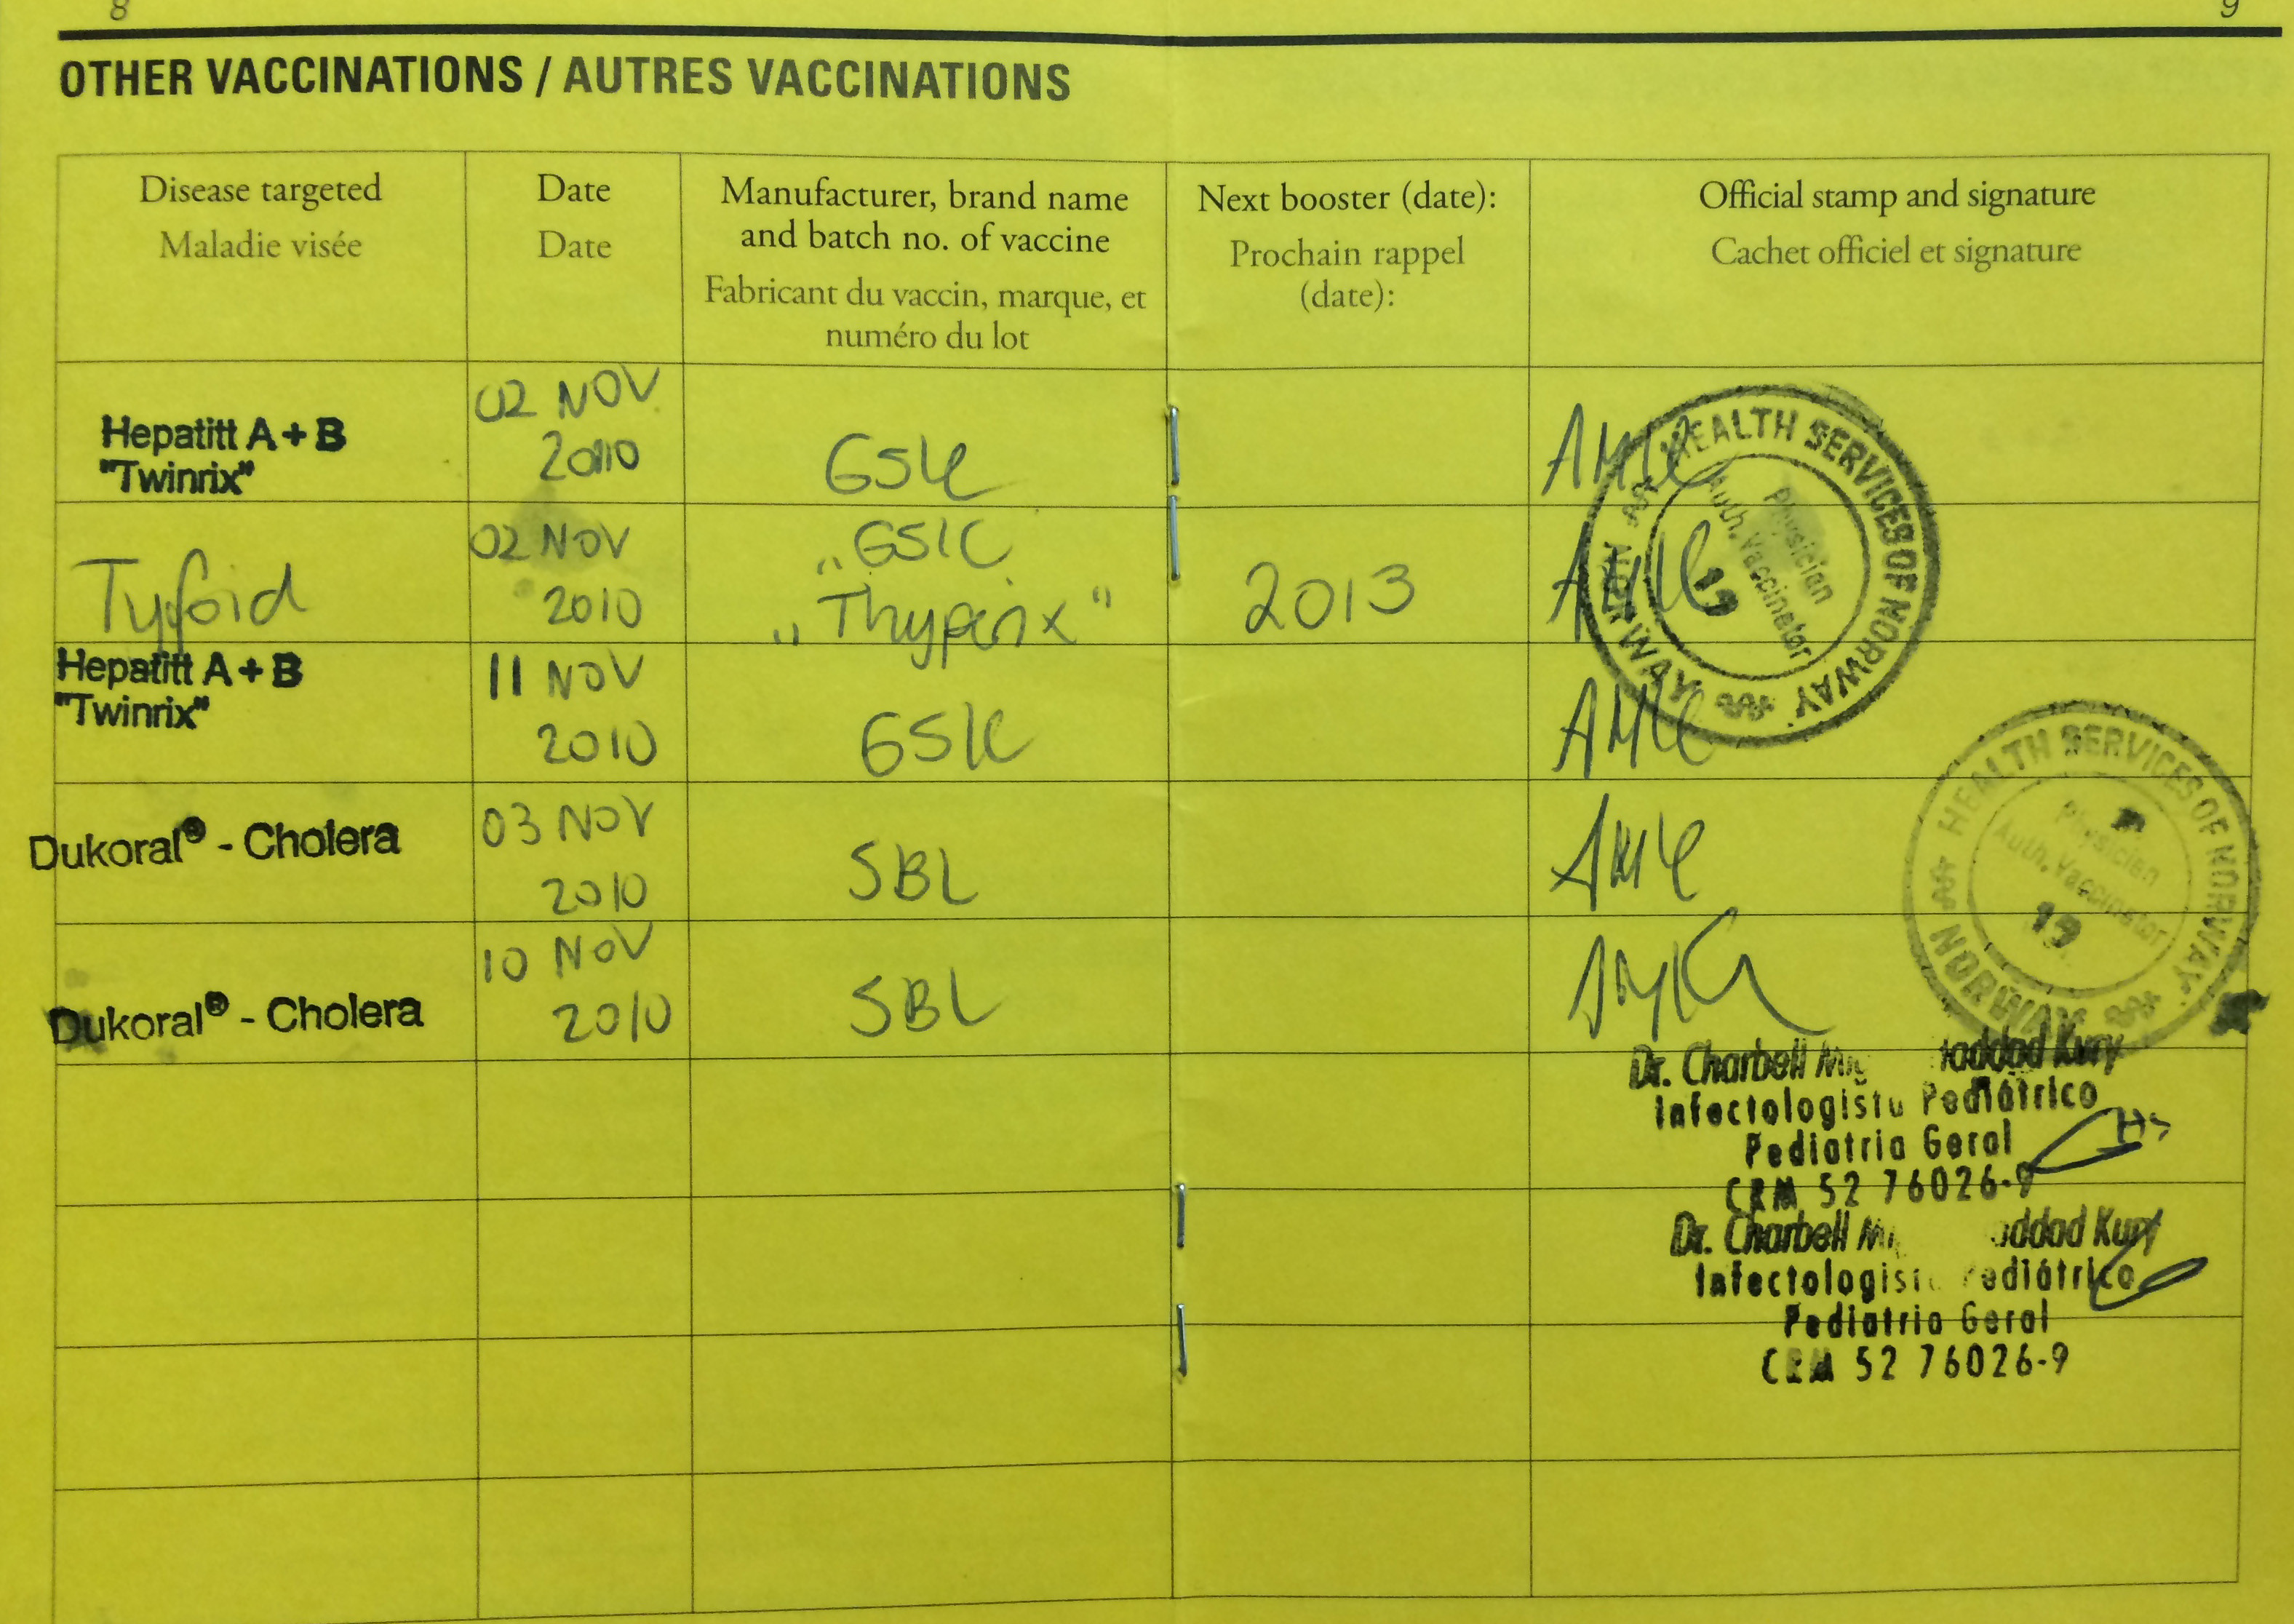 8
9
OTHER VACCINATIONS / AUTRES VACCINATIONS
Disease targeted
Maladie visée
Date
Date
Manufacturer, brand name
and batch no. of vaccine
Fabricant du vaccin, marque, et
numéro du lot
Next booster (date):
Prochain rappel
(date):
Official stamp and signature
Cachet officiel et signature
Hepatitt A + B
"Twinrix"
02 NOV
2010
GSK
HEALTH SERVICES OF NORWAY
NORWAY
Physician
Auth. Vaccinator
19
Tyfoid
02 NOV
2010
"GSK
"Thyperix"
2013
Hepatitt A + B
"Twinrix"
11 NOV
2010
GSK
Dukoral® - Cholera
03 NOV
2010
SBL
HEALTH SERVICES OF NORWAY
NORWAY
Physician
Auth. Vaccinator
19
Dukoral® - Cholera
10 NOV
2010
SBL
Dr. Charbell Kury
Infectologista Pediátrico
Pediatria Geral
CRM 52 76026-9
Dr. Charbell Kury
Infectologista Pediátrico
Pediatria Geral
CRM 52 76026-9